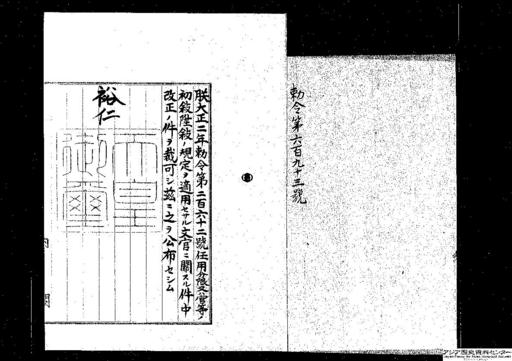 勅令第六百九十三號
朕大正二年勅令第二百六十二號任用分限又ハ官等ノ
初敍陞敍ノ規定ヲ適用セサル文官ニ關スル件中
改正ノ件ヲ裁可シ茲ニ之ヲ公布セシム
裕仁
天皇
御璽
内閣
アジア歴史資料センター